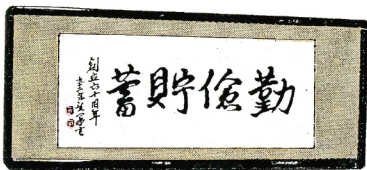 勤儉貯蓄
創立六十周年